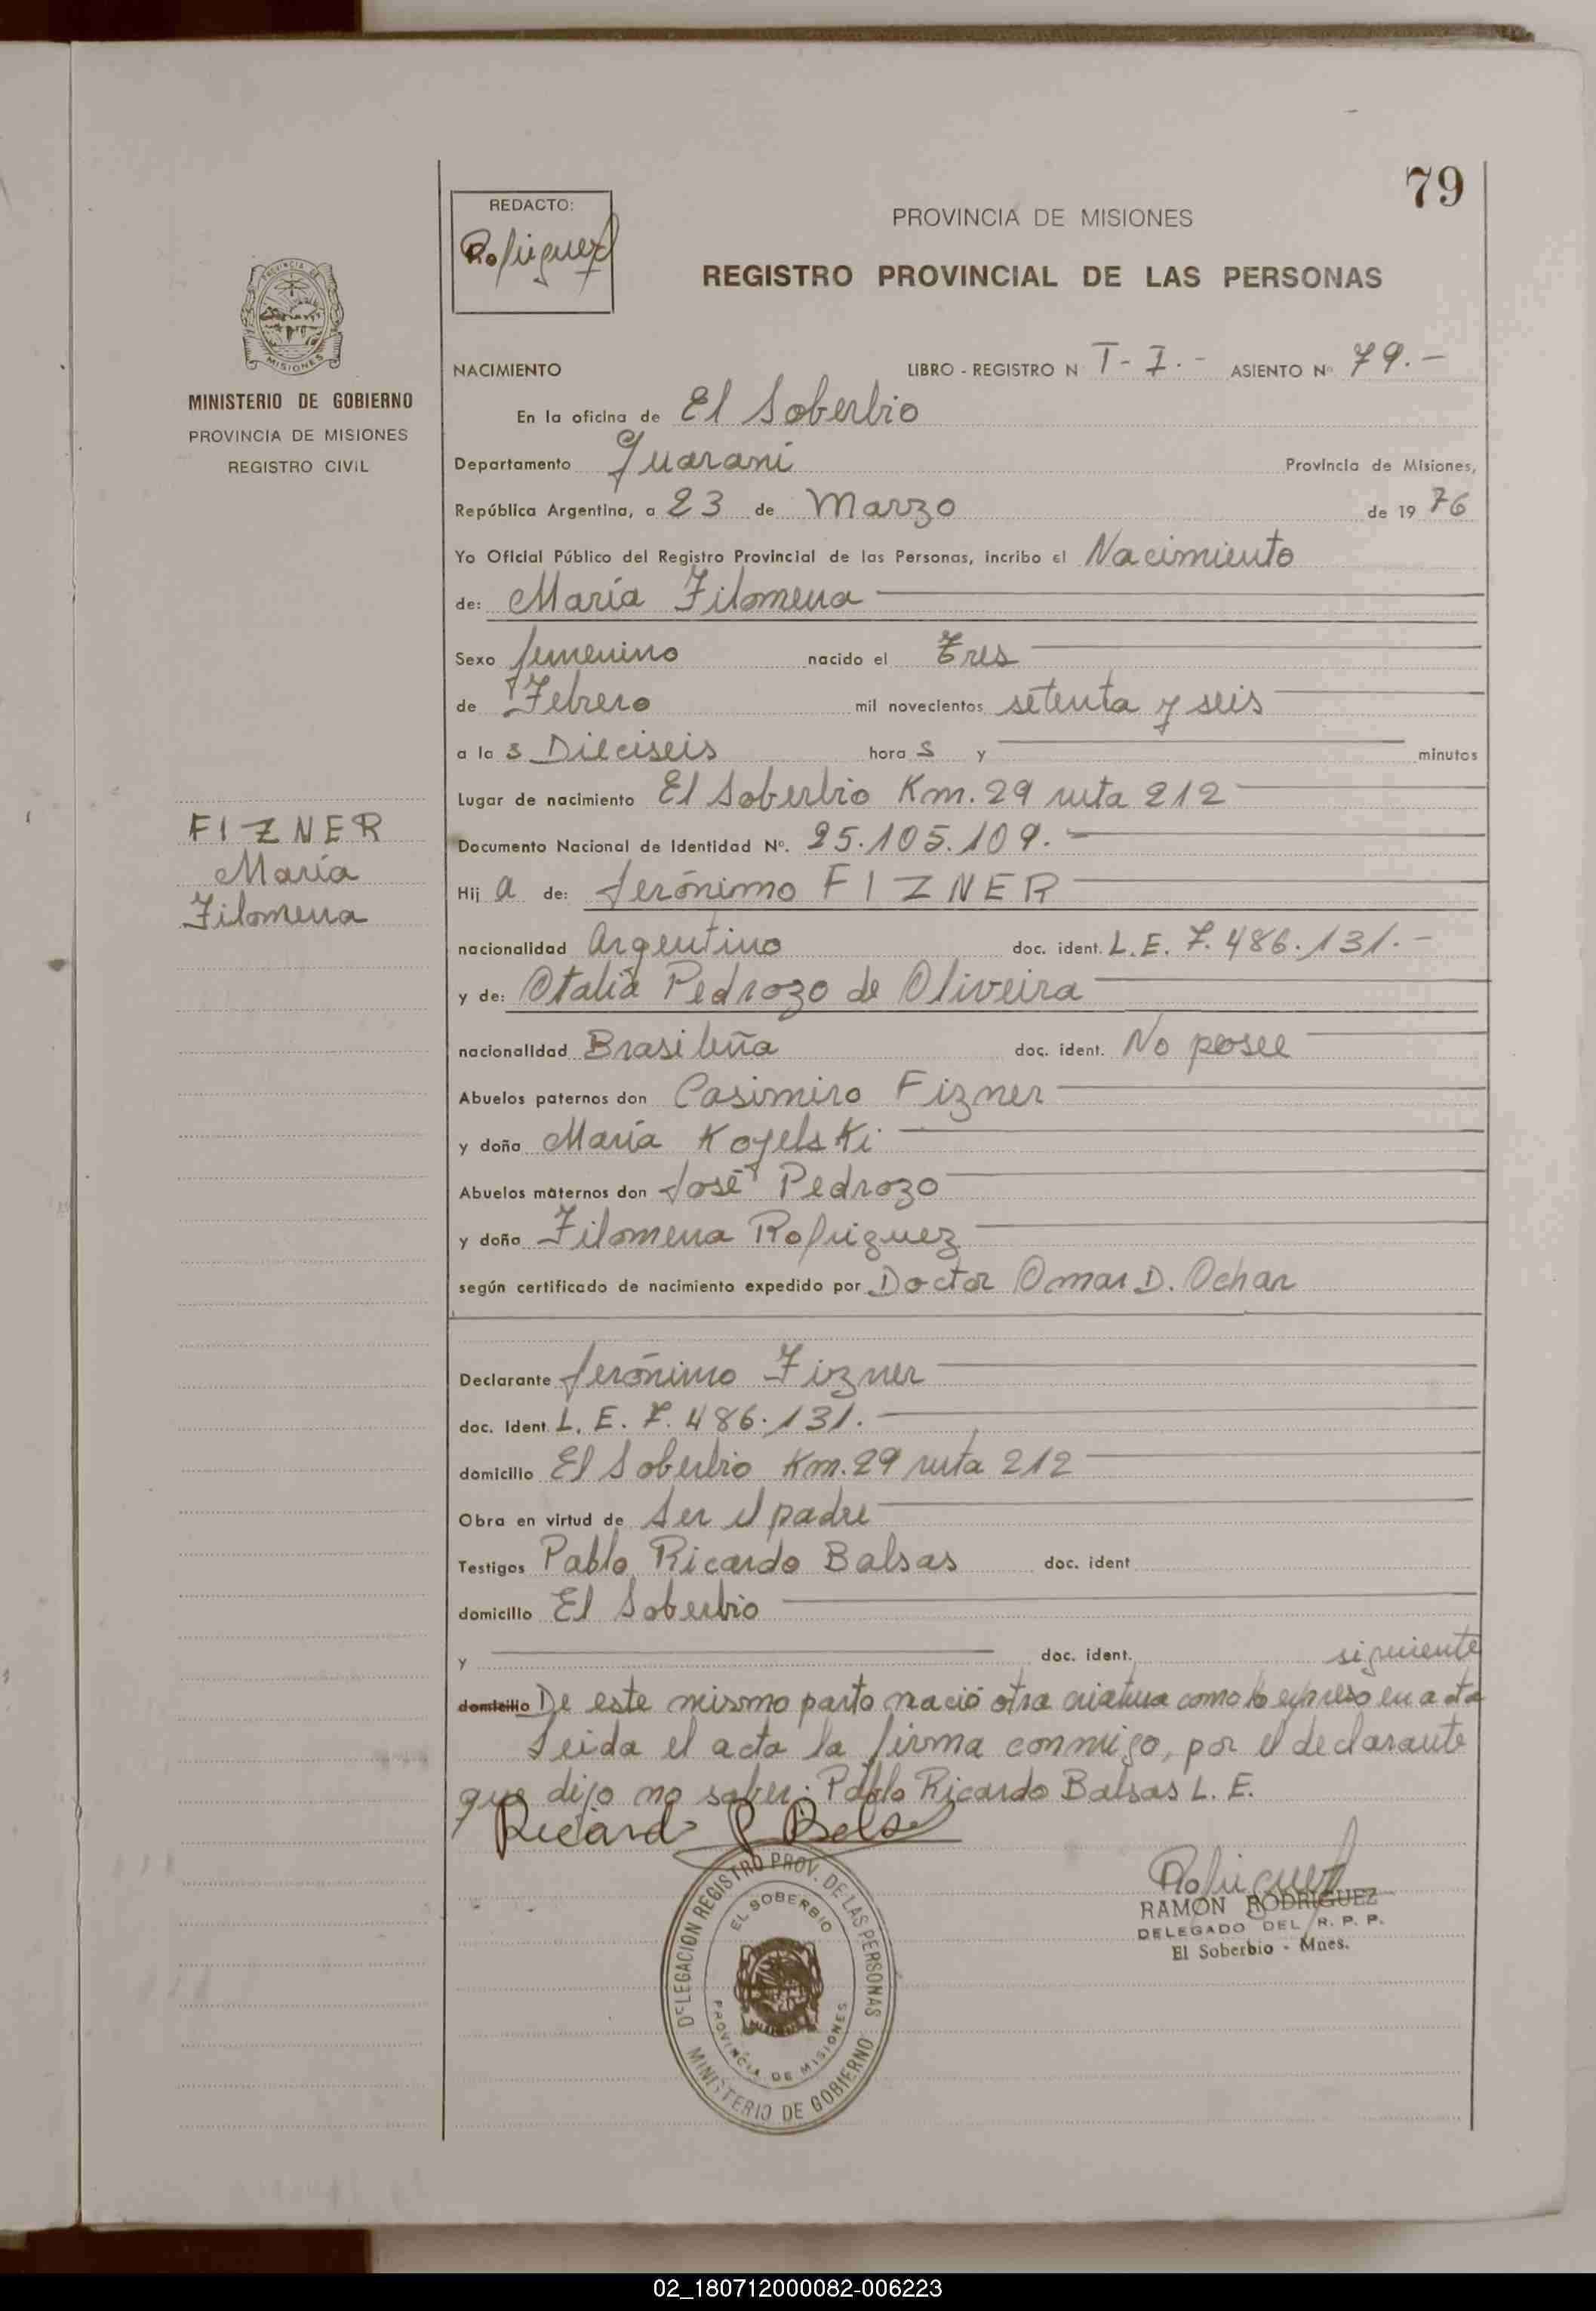 79
REDACTO:
Rodriguez
PROVINCIA DE MISIONES
REGISTRO PROVINCIAL DE LAS PERSONAS
PROVINCIA DE
MISIONES
MINISTERIO DE GOBIERNO
PROVINCIA DE MISIONES
REGISTRO CIVIL
NACIMIENTO LIBRO - REGISTRO N T - I. - ASIENTO Nº 79. -
En la oficina de El Soberbio
Departamento Guaraní Provincia de Misiones,
República Argentina, a 23 de Marzo de 19 76
Yo Oficial Público del Registro Provincial de las Personas, incribo el Nacimiento
de: María Filomena
Sexo femenino nacido el Tres
de Febrero mil novecientos setenta y seis
a la s Dieciseis hora s y minutos
Lugar de nacimiento El Soberbio Km. 29 ruta 212
FIZNER
María
Filomena
Documento Nacional de Identidad Nº. 25.105.109. -
Hij a de: Jerónimo FIZNER
nacionalidad Argentino doc. ident. L. E. 7.486.131. -
y de: Otalia Pedrozo de Oliveira
nacionalidad Brasileña doc. ident. No posee
Abuelos paternos don Casimiro Fizner
y doña María Koyelski
Abuelos maternos don José Pedrozo
y doña Filomena Rodriguez
según certificado de nacimiento expedido por Doctor Omar D. Ochar
Declarante Jerónimo Fizner
doc. Ident. L. E. 7.486.131.
domicilio El Soberbio Km. 29 ruta 212
Obra en virtud de Ser el padre
Testigos Pablo Ricardo Balsas doc. ident
domicilio El Soberbio
y doc. ident. siguiente
domicilio De este mismo parto nació otra criatura como lo expreso en acta
Leida el acta la firma conmigo, por el declarante
que dijo no saber: Pablo Ricardo Balsas L. E.
Ricardo P Balsa
DELEGACION REGISTRO PROV. DE LAS PERSONAS
EL SOBERBIO
PROVINCIA DE MISIONES
MINISTERIO DE GOBIERNO
Rodriguez
RAMON RODRIGUEZ
DELEGADO DEL R. P. P.
El Soberbio - Mnes.
02_180712000082-006223